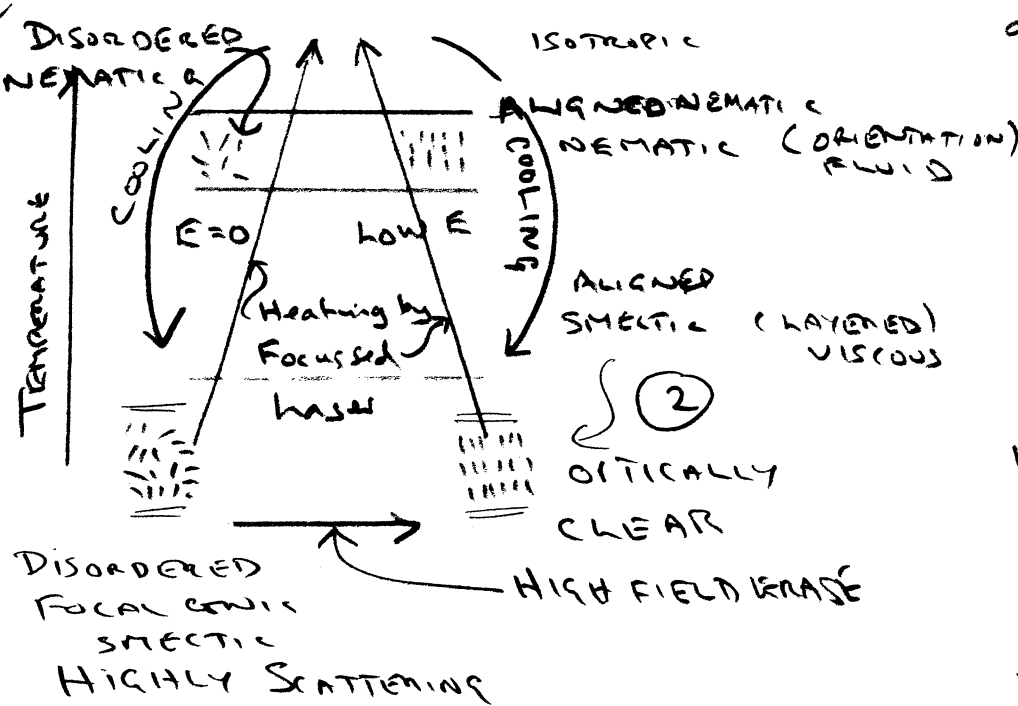 DISORDERED
NEMATIC
ISOTROPIC
ALIGNED NEMATIC
NEMATIC (ORIENTATION)
FLUID
COOLING
COOLING
TEMPERATURE
E=0
LOW E
Heating by
Focussed
Laser
ALIGNED
SMECTIC (LAYERED)
VISCOUS
2
OPTICALLY
CLEAR
HIGH FIELD ERASE
DISORDERED
FOCAL CONIC
SMECTIC
HIGHLY SCATTERING